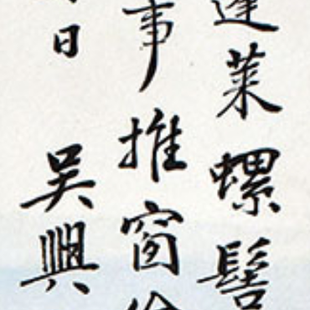 蓬萊螺髻
事推窗
日吳興